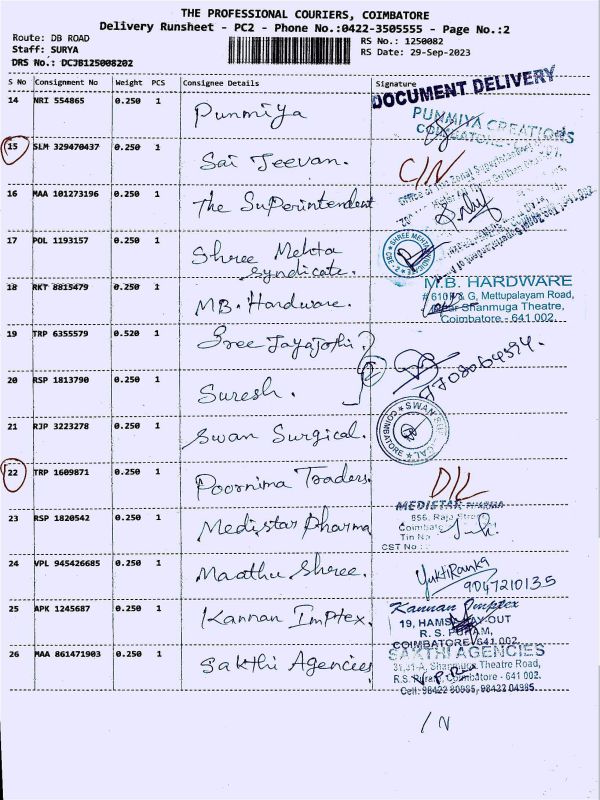 THE PROFESSIONAL COURIERS, COIMBATORE
Delivery Runsheet - PC2 - Phone No.:0422-3505555 - Page No.:2
Route: DB ROAD
Staff: SURYA
DRS No.: DCJB125008202
RS No.: 1250082
RS Date: 29-Sep-2023
S No Consignment No Weight PCS Consignee Details Signature
DOCUMENT DELIVERY
14 NRI 554865 0.250 1 Punmiya
PUNMIYA CREATIONS
15 SLM 329470437 0.250 1 Sai Jeevan. C/N
16 MAA 101273196 0.250 1 The Superintendent
17 POL 1193157 0.250 1 Shree Mehta
syndicate.
SHREE MEHTA SYNDICATE
18 RKT 8815479 0.250 1 M.B. Hardware.
M.B. HARDWARE
# 610 F & G, Mettupalayam Road,
Near Shanmuga Theatre,
Coimbatore - 641 002.
19 TRP 6355579 0.520 1 Sree Jayajothi
20 RSP 1813790 0.250 1 Suresh.
21 RJP 3223278 0.250 1 Swan Surgical.
22 TRP 1609871 0.250 1 Poornima Traders. D/L
23 RSP 1820542 0.250 1 Medistar Pharma
MEDISTAR PHARMA
856, Raja Street
Coimbato
Tin No
CST No :
24 VPL 945426685 0.250 1 Maathu Shree.
YuktiRanka
9047210135
25 APK 1245687 0.250 1 Kannan Imptex.
Kannan Imptex
19, HAMSA LAY-OUT
R. S. PURAM,
COIMBATORE 641 002.
26 MAA 861471903 0.250 1 Sakthi Agencies
SAKTHI AGENCIES
31,31-A, Shanmuga Theatre Road,
R.S. Puram, Coimbatore - 641 002.
Cell: 98422 80985, 98422 04985.
/ N